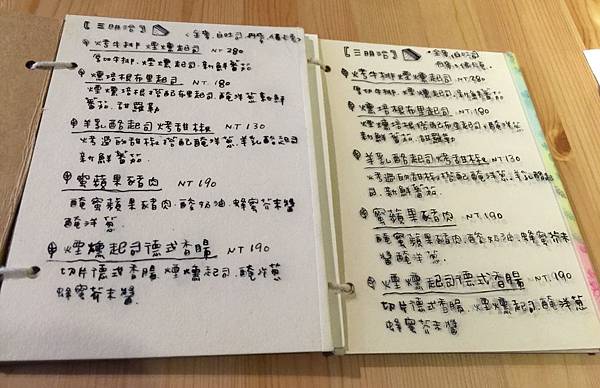 【三明治】
(全麥.白吐司.
⊕烤牛排煙燻起司 NT 280
厚切牛排.煙燻起司.新鮮蕃茄
⊕燻培根布里起司 NT 180
煙燻培根搭配布里起司.醃洋蔥.新鮮
蕃茄.甜羅勒
⊕羊乳酪起司烤甜椒 NT 130
烤過的甜椒.搭配醃洋蔥.羊乳酪起司
新鮮蕃茄.
⊕蜜蘋果豬肉 NT 190
醃蜜蘋果豬肉.酸奶油.蜂蜜芥末醬
醃洋蔥.
⊕煙燻起司德式香腸 NT 190
切片德式香腸.煙燻起司.醃洋蔥
蜂蜜芥末醬.
【三明治】
全麥.白吐司
⊕烤牛排煙燻起司 NT.280
厚切牛排.煙燻起司.新鮮蕃茄.
⊕燻培根布里起司 NT.180
煙燻培根搭配布里起司.醃洋蔥
新鮮蕃茄.甜羅勒
⊕羊乳酪起司烤甜椒 NT.130
烤過的甜椒.搭配醃洋蔥.羊乳酪起
司.新鮮蕃茄.
⊕蜜蘋果豬肉 NT.190
醃蜜蘋果豬肉.酸奶油.蜂蜜芥末
醬醃洋蔥.
⊕煙燻起司德式香腸 NT.190
切片德式香腸.煙燻起司.醃洋蔥
蜂蜜芥末醬